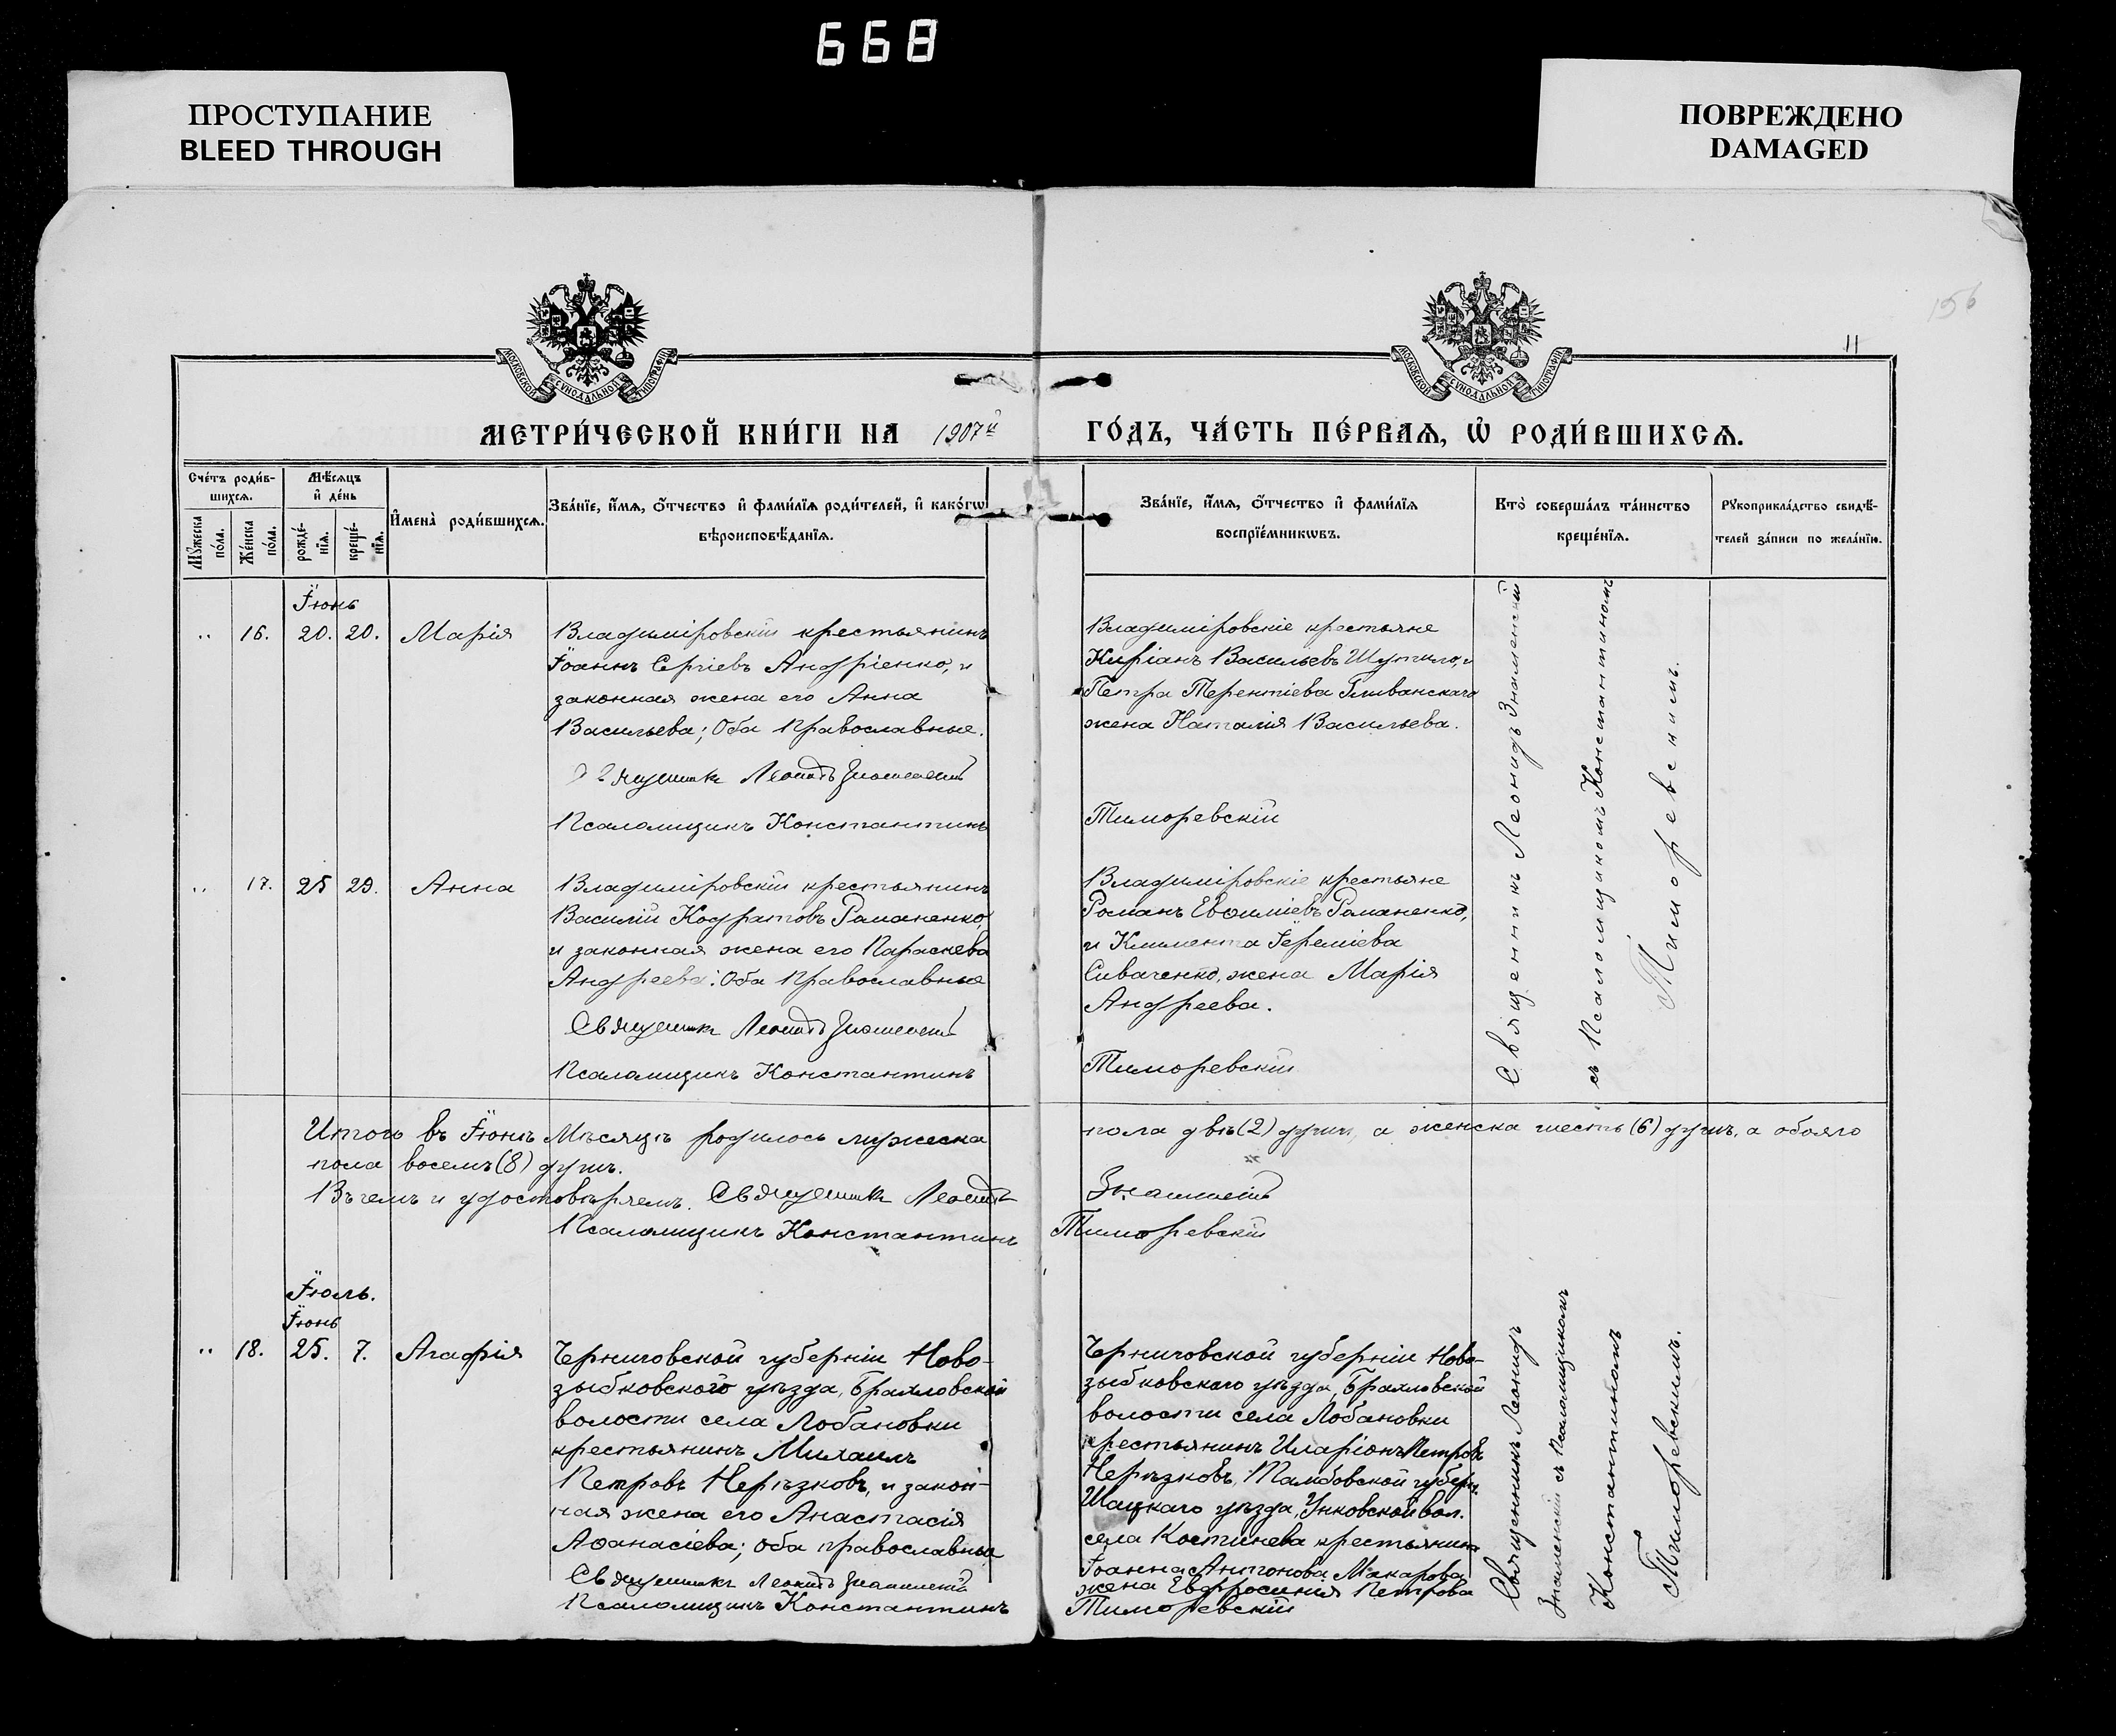 668
ПРОСТУПАНИЕ
BLEED THROUGH
ПОВРЕЖДЕНО
DAMAGED
156
11
МОСКОВСКОЙ СѴНОДАЛЬНОЙ ТИПОГРАФІИ
МОСКОВСКОЙ СѴНОДАЛЬНОЙ ТИПОГРАФІИ
МЕТРИ́ЧЕСКОЙ КНИ́ГИ НА 1907й ГО́ДЪ, ЧА́СТЬ ПЕ́РВАѦ, Ѡ҆ РОДИ́ВШИХСѦ.
Сче́тъ роди́в-
шихсѧ.
Мꙋ́жеска
по́ла.
Же́нска
по́ла.
Мѣ́сѧцъ
и҆ де́нь
рожде́-
нїѧ.
креще́-
нїѧ.
И҆мена̀ роди́вшихсѧ.
Зва́нїе, и҆́мѧ, ѻ҆́тчество и҆ фами́лїѧ роди́телей, и҆ како́гѡ
вѣроисповѣ́данїѧ.
Зва́нїе, и҆́мѧ, ѻ҆́тчество и҆ фами́лїѧ
воспрїе́мникѡвъ.
Кто̀ соверша́лъ та́инство
креще́нїѧ.
Рꙋкоприкла́дство свидѣ́-
телей за́писи по жела́нїю.
Іюнь
,, 16. 20. 20. Марія
Владиміровскій крестьянинъ
Іоаннъ Сергіевъ Андріенко, и
законная жена его Анна
Васильева; Оба Православные.
Священникъ Леонидъ Знаменскій
Псаломщикъ Константинъ
Владиміровскіе крестьяне
Киріанъ Васильевъ Шутило, и
Петра Терентіева Гливанскаго
жена Наталія Васильева.
Тиморевскій
Священникъ Леонидъ Знаменскій
съ Псаломщикомъ Константиномъ
Тиморевскимъ.
,, 17. 25 29. Анна
Владиміровскій крестьянинъ
Василій Кодратовъ Романенко,
и законная жена его Параскева
Андреева: Оба Православные
Священникъ Леонидъ Знаменскій
Псаломщикъ Константинъ
Владиміровскіе крестьяне
Романъ Евѳиміевъ Романенко,
и Климента Іереміева
Сиваченко, жена Марія
Андреева.
Тиморевскій
Итого въ Іюнѣ Мѣсяцѣ родилось мужеска пола двѣ (2) души, а женска шесть (6) душъ, а обоего
пола восемъ (8) душъ.
Въ чемъ и удостовѣряемъ. Священникъ Леонидъ Знаменскій
Псаломщикъ Константинъ Тиморевскій
Іюль.
Іюнь
,, 18. 25. 7. Агафія
Черниговской губерніи Ново-
зыбковского уѣзда, Брахловской
волости села Лобановки
крестьянинъ Михаилъ
Петровъ Нерѣзковъ, и закон-
ная жена его Анастасія
Аѳанасіева; оба православные
Священникъ Леонидъ Знаменскій
Псаломщикъ Константинъ
Черниговской губерніи Ново-
зыбковскаго уѣзда, Брахловской
волости села Лобановки
крестьянинъ Иларіонъ Петровъ
Нерѣзковъ, Тамбовской губерн.
Шацкаго уѣзда, Унковской вол.
села Костинева крестьянина
Іоанна Антонова Макарова
жена Евфросинія Петрова
Тиморевскій
Священникъ Леонидъ
Знаменскій съ Псаломщикомъ
Константиномъ
Тиморевскимъ.